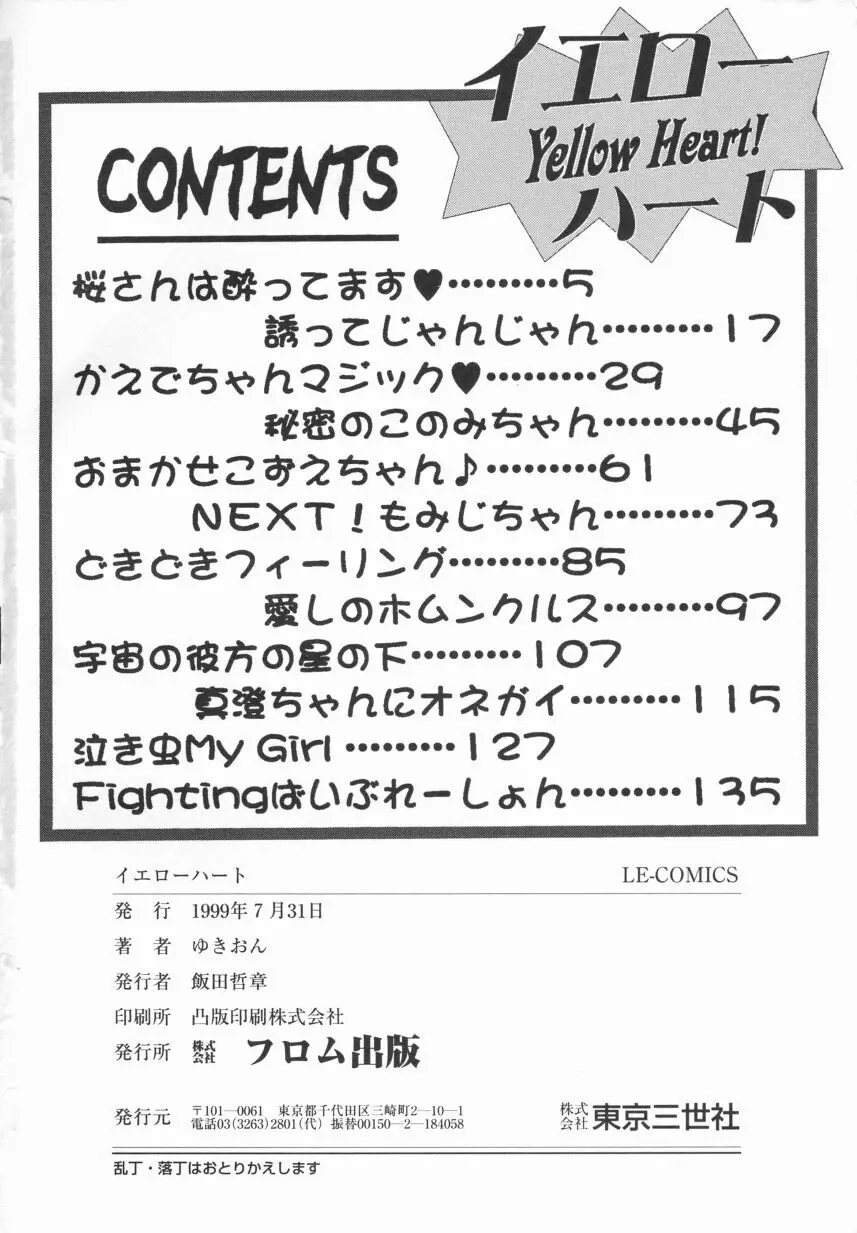 イエロー
Yellow Heart!
ハート
CONTENTS
桜さんは酔ってます♥………5
誘ってじゃんじゃん………17
かえでちゃんマジック♥………29
秘密のこのみちゃん………45
おまかせこずえちゃん♪………61
NEXT！もみじちゃん………73
どきどきフィーリング………85
愛しのホムンクルス………97
宇宙の彼方の星の下………107
真澄ちゃんにオネガイ………115
泣き虫My Girl………127
Fightingばいぶれーしょん………135
イエローハート LE-COMICS
発 行 1999年7月31日
著 者 ゆきおん
発行者 飯田哲章
印刷所 凸版印刷株式会社
発行所 株式会社 フロム出版
発行元 〒101―0061 東京都千代田区三崎町2―10―1
電話03(3263)2801(代) 振替00150―2―184058
株式会社 東京三世社
乱丁・落丁はおとりかえします